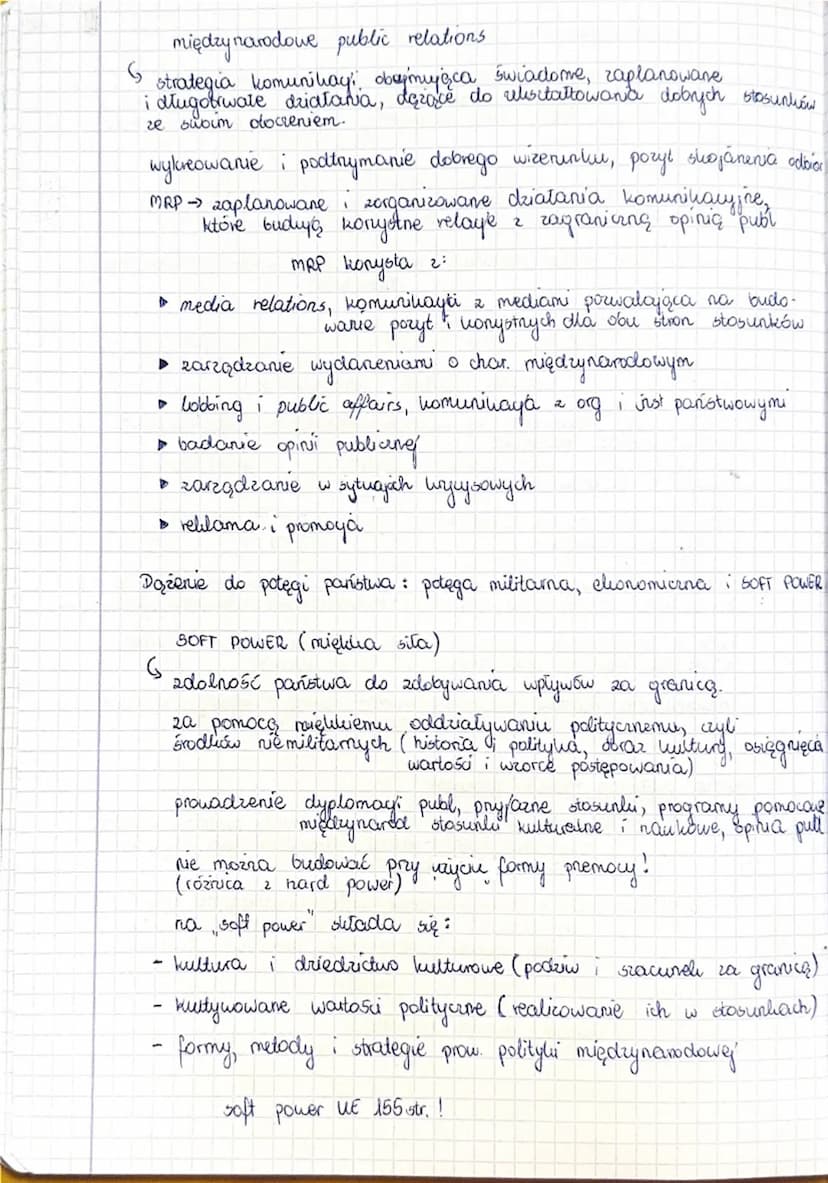 międzynarodowe public relations
↳ strategia komunikacji obejmująca świadome, zaplanowane
i długotrwałe działania, dążące do ukształtowania dobrych stosunków
ze swoim otoczeniem.
wykreowanie i podtrzymanie dobrego wizerunku, pozyt skojarzenia odbior
MRP → zaplanowane i zorganizowane działania komunikacyjne,
które budują korzystne relacje z zagraniczną opinią publ
MRP korzysta z:
▸ media relations, komunikacji z mediami pozwalająca na budo-
wanie pozyt i korzystnych dla obu stron stosunków
▸ zarządzanie wydarzeniami o char. międzynarodowym
▸ lobbing i public affairs, komunikacja z org i inst państwowymi
▸ badanie opinii publicznej
▸ zarządzanie w sytuacjach kryzysowych
▸ reklama i promocja
Dążenie do potęgi państwa: potęga militarna, ekonomiczna i SOFT POWER
SOFT POWER (miękka siła)
↳ zdolność państwa do zdobywania wpływów za granicą.
za pomocą miękkiemu oddziaływaniu politycznemu, czyli
środków niemilitarnych (historia i polityka, obraz kultury, osiągnięcia
wartości i wzorce postępowania)
prowadzenie dyplomacji publ, przyjazne stosunki, programy pomocowe
międzynarod stosunki kulturalne i naukowe, opinia publ
nie można budować przy użyciu formy przemocy!
(różnica z hard power)
na „soft power" składa się:
- kultura i dziedzictwo kulturowe (podziw i szacunek za granicą)
- kultywowane wartości polityczne (realizowanie ich w stosunkach)
- formy, metody i strategie prow. polityki międzynarodowej
soft power UE 155 str. !